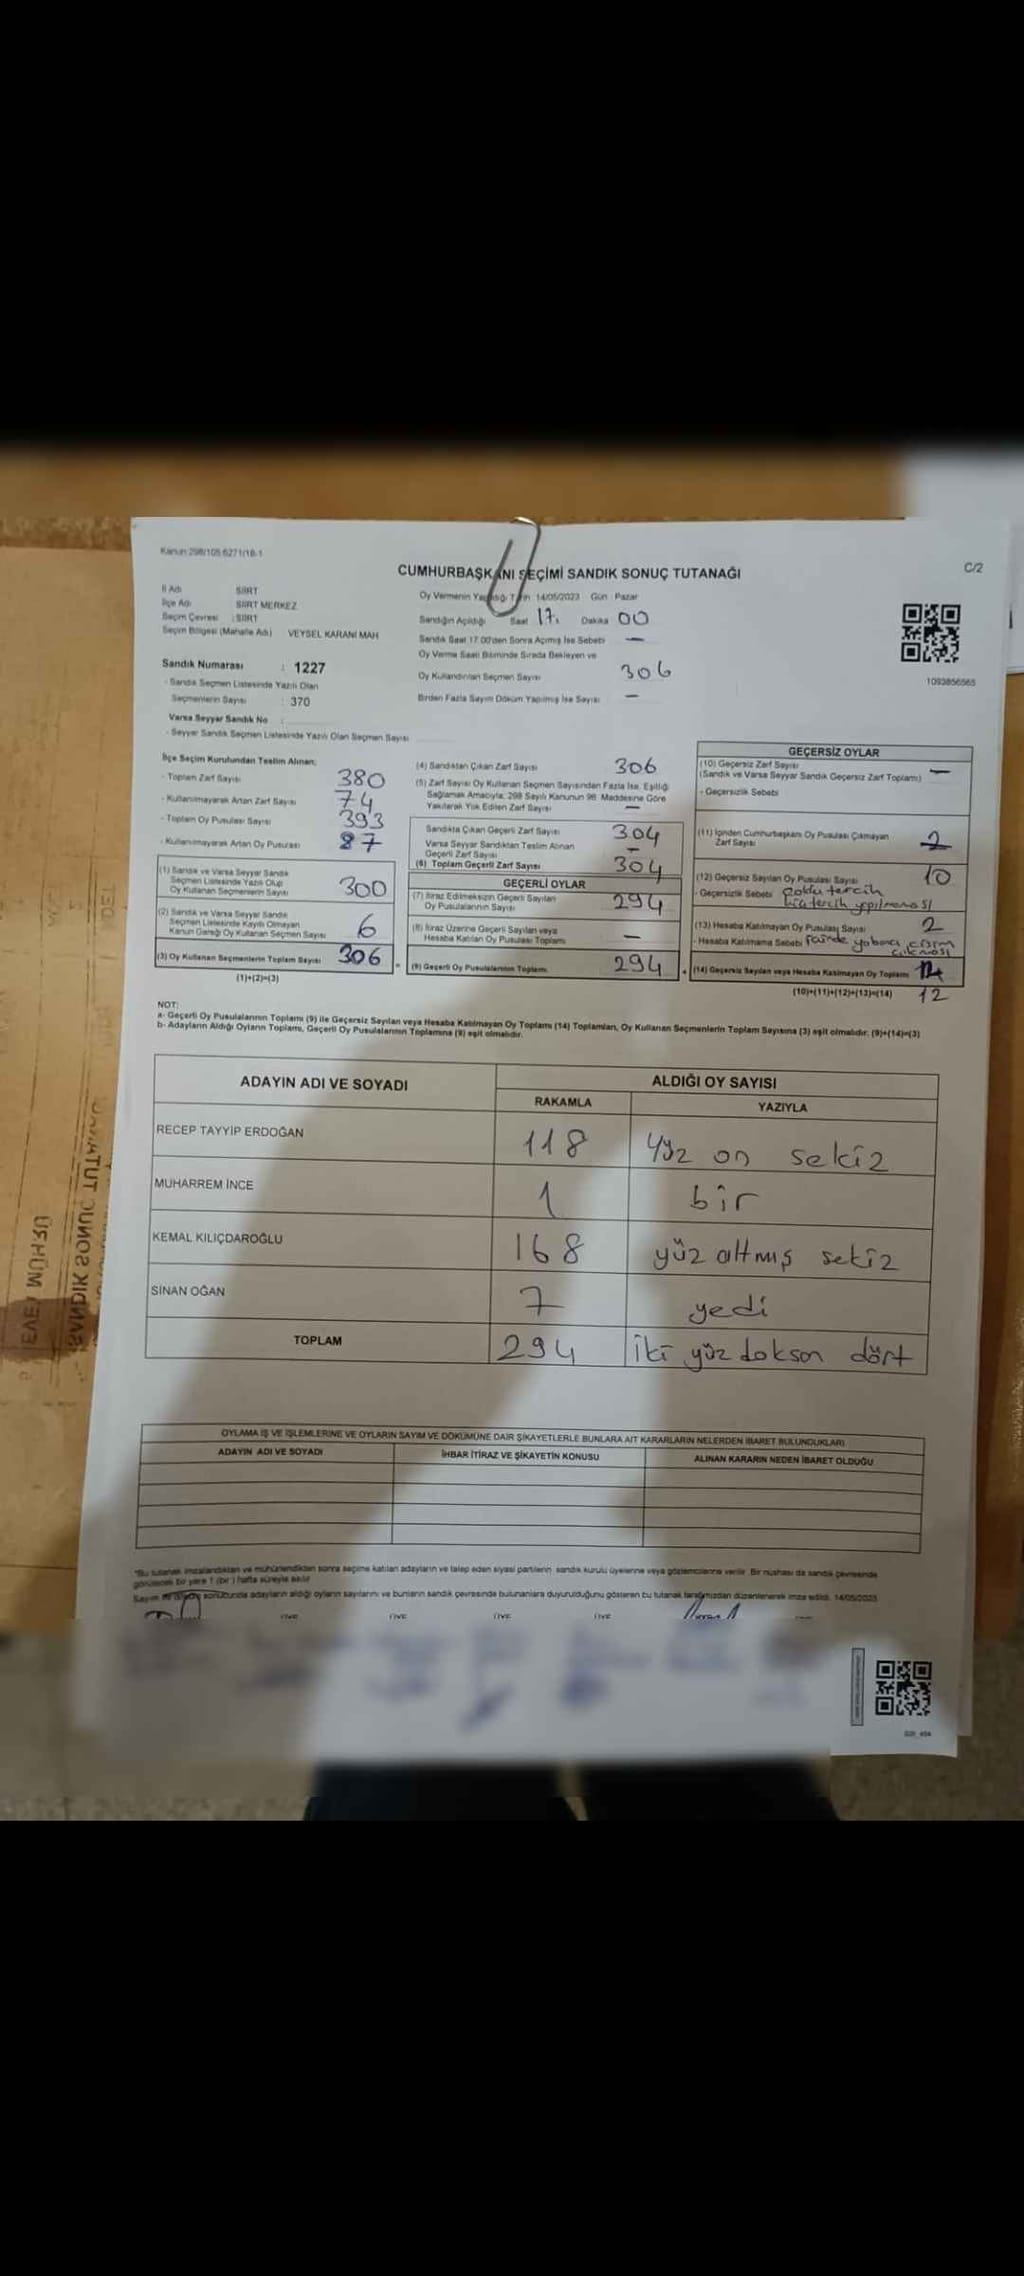 Kanun:298/105 6271/18-1
CUMHURBAŞKANI SEÇİMİ SANDIK SONUÇ TUTANAĞI
C/2
İl Adı SİİRT
İlçe Adı SİİRT MERKEZ
Seçim Çevresi : SİİRT
Seçim Bölgesi (Mahalle Adı) VEYSEL KARANİ MAH
Oy Vermenin Yapıldığı Tarih 14/05/2023 Gün : Pazar
Sandığın Açıldığı Saat 17. Dakika 00
Sandık Saat 17.00'den Sonra Açılmış İse Sebebi —
Oy Verme Saati Bitiminde Sırada Bekleyen ve
Oy Kullandırılan Seçmen Sayısı 306
Birden Fazla Sayım Döküm Yapılmış İse Sayısı —
1093856565
Sandık Numarası : 1227
- Sandık Seçmen Listesinde Yazılı Olan
Seçmenlerin Sayısı : 370
Varsa Seyyar Sandık No :
- Seyyar Sandık Seçmen Listesinde Yazılı Olan Seçmen Sayısı
İlçe Seçim Kurulundan Teslim Alınan;
- Toplam Zarf Sayısı 380
- Kullanılmayarak Artan Zarf Sayısı 74
- Toplam Oy Pusulası Sayısı 393
- Kullanılmayarak Artan Oy Pusulası 87
(1) Sandık ve Varsa Seyyar Sandık
Seçmen Listesinde Yazılı Olup
Oy Kullanan Seçmenlerin Sayısı 300
(2) Sandık ve Varsa Seyyar Sandık
Seçmen Listesinde Kayıtlı Olmayan
Kanun Gereği Oy Kullanan Seçmen Sayısı 6
(3) Oy Kullanan Seçmenlerin Toplam Sayısı 306
(1)+(2)=(3)
(4) Sandıktan Çıkan Zarf Sayısı 306
(5) Zarf Sayısı Oy Kullanan Seçmen Sayısından Fazla İse, Eşitliği
Sağlamak Amacıyla, 298 Sayılı Kanunun 98. Maddesine Göre
Yakılarak Yok Edilen Zarf Sayısı —
Sandıkta Çıkan Geçerli Zarf Sayısı 304
Varsa Seyyar Sandıktan Teslim Alınan
Geçerli Zarf Sayısı —
(6) Toplam Geçerli Zarf Sayısı 304
GEÇERLİ OYLAR
(7) İtiraz Edilmeksizin Geçerli Sayılan
Oy Pusulalarının Sayısı 294
(8) İtiraz Üzerine Geçerli Sayılan veya
Hesaba Katılan Oy Pusulası Toplamı —
(9) Geçerli Oy Pusulalarının Toplamı 294
GEÇERSİZ OYLAR
(10) Geçersiz Zarf Sayısı —
(Sandık ve Varsa Seyyar Sandık Geçersiz Zarf Toplamı)
- Geçersizlik Sebebi
(11) İçinden Cumhurbaşkanı Oy Pusulası Çıkmayan
Zarf Sayısı 2
(12) Geçersiz Sayılan Oy Pusulası Sayısı 10
- Geçersizlik Sebebi çoklu tercih
hiç tercih yapılmaması
(13) Hesaba Katılmayan Oy Pusulası Sayısı 2
- Hesaba Katılmama Sebebi İçinde yabancı cisim
çıkması
(14) Geçersiz Sayılan veya Hesaba Katılmayan Oy Toplamı
(10)+(11)+(12)+(13)=(14) 12
NOT:
a- Geçerli Oy Pusulalarının Toplamı (9) ile Geçersiz Sayılan veya Hesaba Katılmayan Oy Toplamı (14) Toplamları, Oy Kullanan Seçmenlerin Toplam Sayısına (3) eşit olmalıdır. (9)+(14)=(3)
b- Adayların Aldığı Oyların Toplamı, Geçerli Oy Pusulalarının Toplamına (9) eşit olmalıdır.
ADAYIN ADI VE SOYADI
ALDIĞI OY SAYISI
RAKAMLA YAZIYLA
RECEP TAYYİP ERDOĞAN 118 yüz on sekiz
MUHARREM İNCE 1 bir
KEMAL KILIÇDAROĞLU 168 yüz altmış sekiz
SİNAN OĞAN 7 yedi
TOPLAM 294 iki yüz doksan dört
OYLAMA İŞ VE İŞLEMLERİNE VE OYLARIN SAYIM VE DÖKÜMÜNE DAİR ŞİKAYETLERLE BUNLARA AİT KARARLARIN NELERDEN İBARET BULUNDUKLARI
ADAYIN ADI VE SOYADI İHBAR İTİRAZ VE ŞİKAYETİN KONUSU ALINAN KARARIN NEDEN İBARET OLDUĞU
*Bu tutanak imzalandıktan ve mühürlendikten sonra seçime katılan adayların ve talep eden siyasi partilerin sandık kurulu üyelerine veya gözlemcilerine verilir. Bir nüshası da sandık çevresinde
görülecek bir yere 1 (bir) hafta süreyle asılır
Sayım ve döküm sonucunda adayların aldığı oyların sayılarını ve bunların sandık çevresinde bulunanlara duyurulduğunu gösteren bu tutanak tarafımızdan düzenlenerek imza edildi. 14/05/2023
ÜYE ÜYE ÜYE ÜYE
SANDIK SONUÇ TUTANA
EVET MÜHRÜ